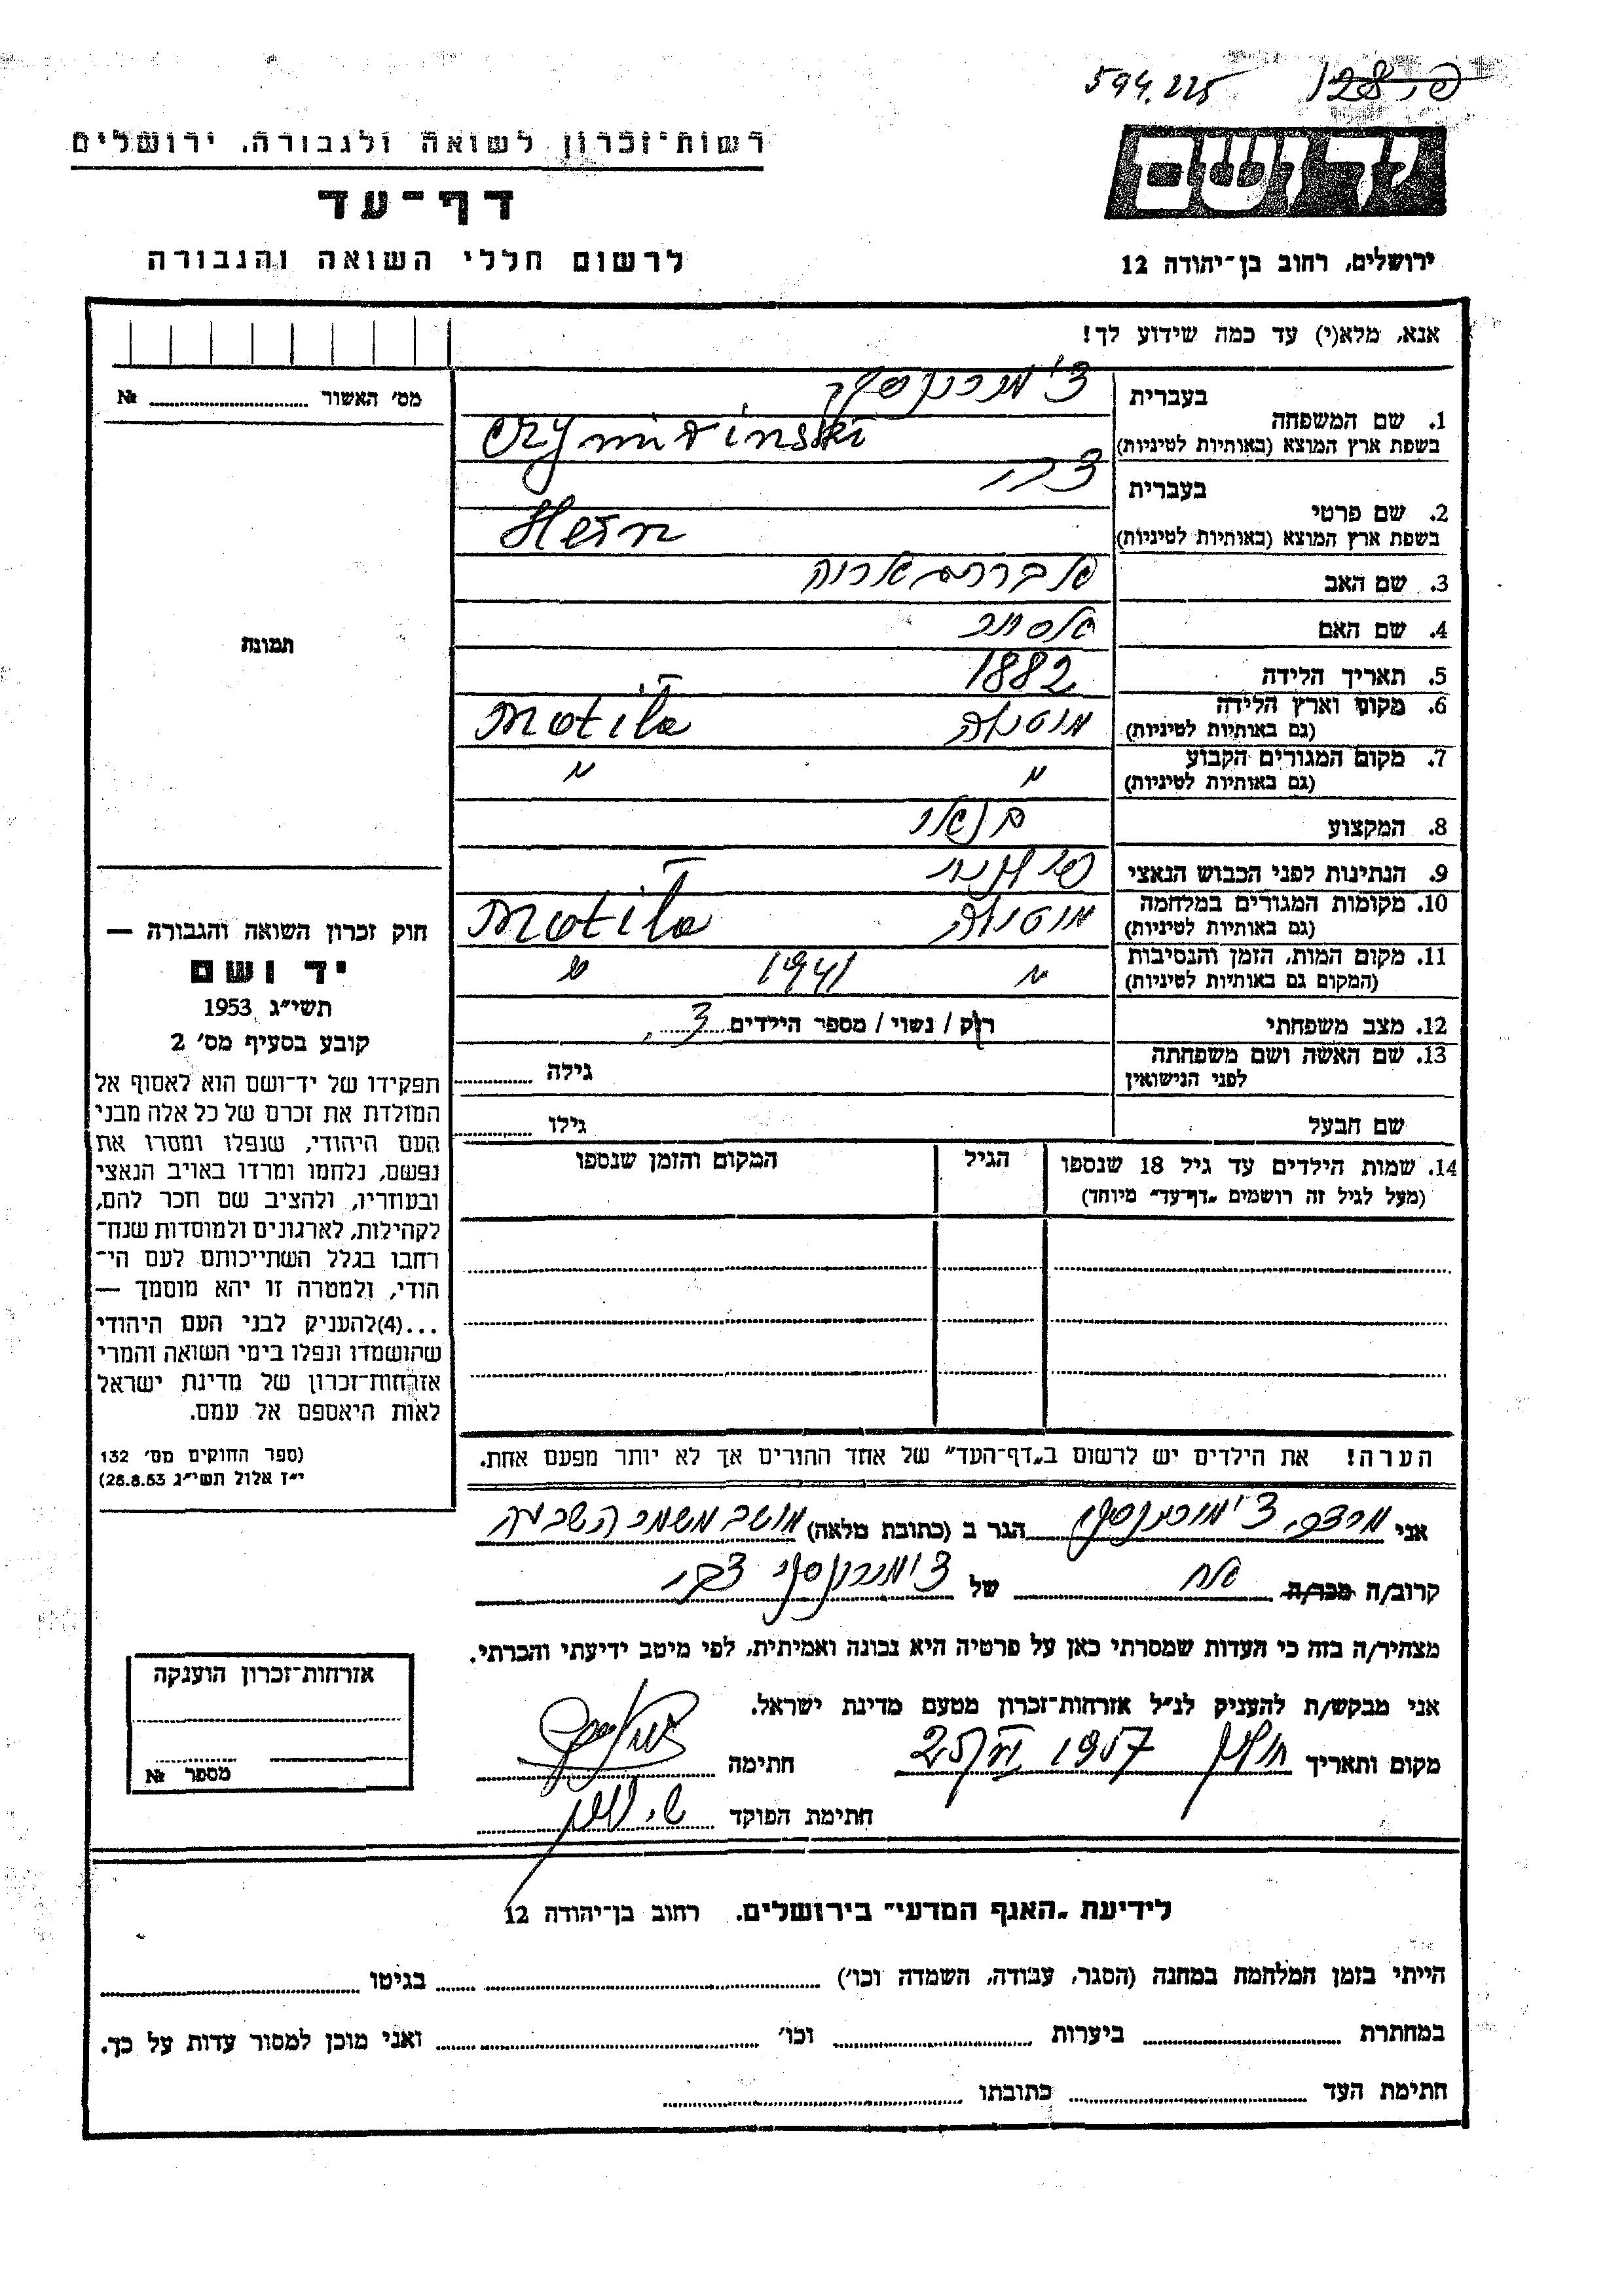 594.225
רשות־זכרון לשואה ולגבורה, ירושלים
דף־עד
לרשום חללי השואה והגבורה
יד ושם
ירושלים, רחוב בן־יהודה 12
אנא, מלא(י) עד כמה שידוע לך!
מס׳ האשור № 
1. שם המשפחה
בעברית
בשפת ארץ המוצא (באותיות לטיניות)
2. שם פרטי
בעברית צבי
בשפת ארץ המוצא (באותיות לטיניות)
3. שם האב
4. שם האם
5. תאריך הלידה 1882
6. מקום וארץ הלידה
(גם באותיות לטיניות) Motila
7. מקום המגורים הקבוע " "
(גם באותיות לטיניות)
8. המקצוע
9. הנתינות לפני הכבוש הנאצי
10. מקומות המגורים במלחמה
(גם באותיות לטיניות) Motila
11. מקום המות, הזמן והנסיבות " 1941 "
(המקום גם באותיות לטיניות)
12. מצב משפחתי רוק / נשוי / מספר הילדים 3
13. שם האשה ושם משפחתה
לפני הנישואין גילה
שם הבעל גילו
14. שמות הילדים עד גיל 18 שנספו הגיל המקום והזמן שנספו
(מעל לגיל זה רושמים „דף־עד" מיוחד)
הערה! את הילדים יש לרשום ב„דף־העד" של אחד ההורים אך לא יותר מפעם אחת.
תמונה
חוק זכרון השואה והגבורה —
יד ושם
תשי״ג 1953
קובע בסעיף מס׳ 2
תפקידו של יד־ושם הוא לאסוף אל
המולדת את זכרם של כל אלה מבני
העם היהודי, שנפלו ומסרו את
נפשם, נלחמו ומרדו באויב הנאצי
ובעוזריו, ולהציב שם וזכר להם,
לקהילות, לארגונים ולמוסדות שנח־
רחבו בגלל השתייכותם לעם הי־
הודי, ולמטרה זו יהא מוסמך —
...(4)להעניק לבני העם היהודי
שהושמדו ונפלו בימי השואה והמרי
אזרחות־זכרון של מדינת ישראל
לאות היאספם אל עמם.
(ספר החוקים מס׳ 132
י״ז אלול תשי״ג 28.8.53)
אני מרדכי הגר ב (כתובת מלאה) מושב משמר השבעה
קרוב/ה מכר/ה אח של צבי
מצהיר/ה בזה כי העדות שמסרתי כאן על פרטיה היא נכונה ואמיתית, לפי מיטב ידיעתי והכרתי.
אני מבקש/ת להעניק לנ״ל אזרחות־זכרון מטעם מדינת ישראל.
מקום ותאריך 1957 חתימה
חתימת הפוקד
אזרחות־זכרון הוענקה
מספר №
לידיעת „האגף המדעי" בירושלים. רחוב בן־יהודה 12
הייתי בזמן המלחמה במחנה (הסגר, עבודה, השמדה וכו׳) בגיטו
במחתרת ביערות וכו׳ ואני מוכן למסור עדות על כך.
חתימת העד כתובתו